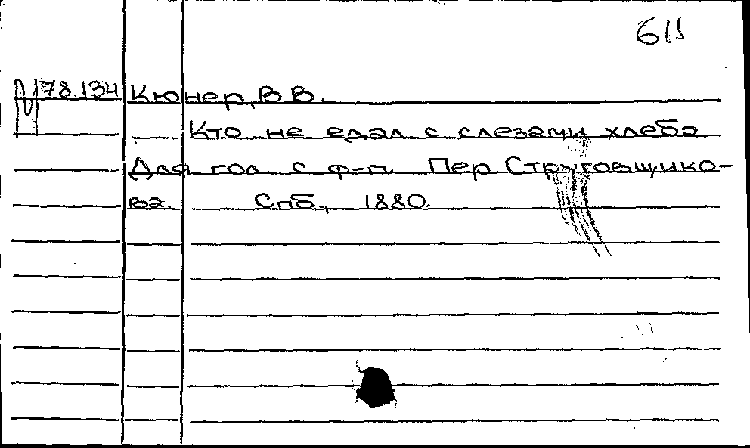 611
78.134 Кюнер, В. В.
Кто не едал с слезами хлеба
Для гол с ф-п. Пер Струговщико-
ва. Спб., 1880.